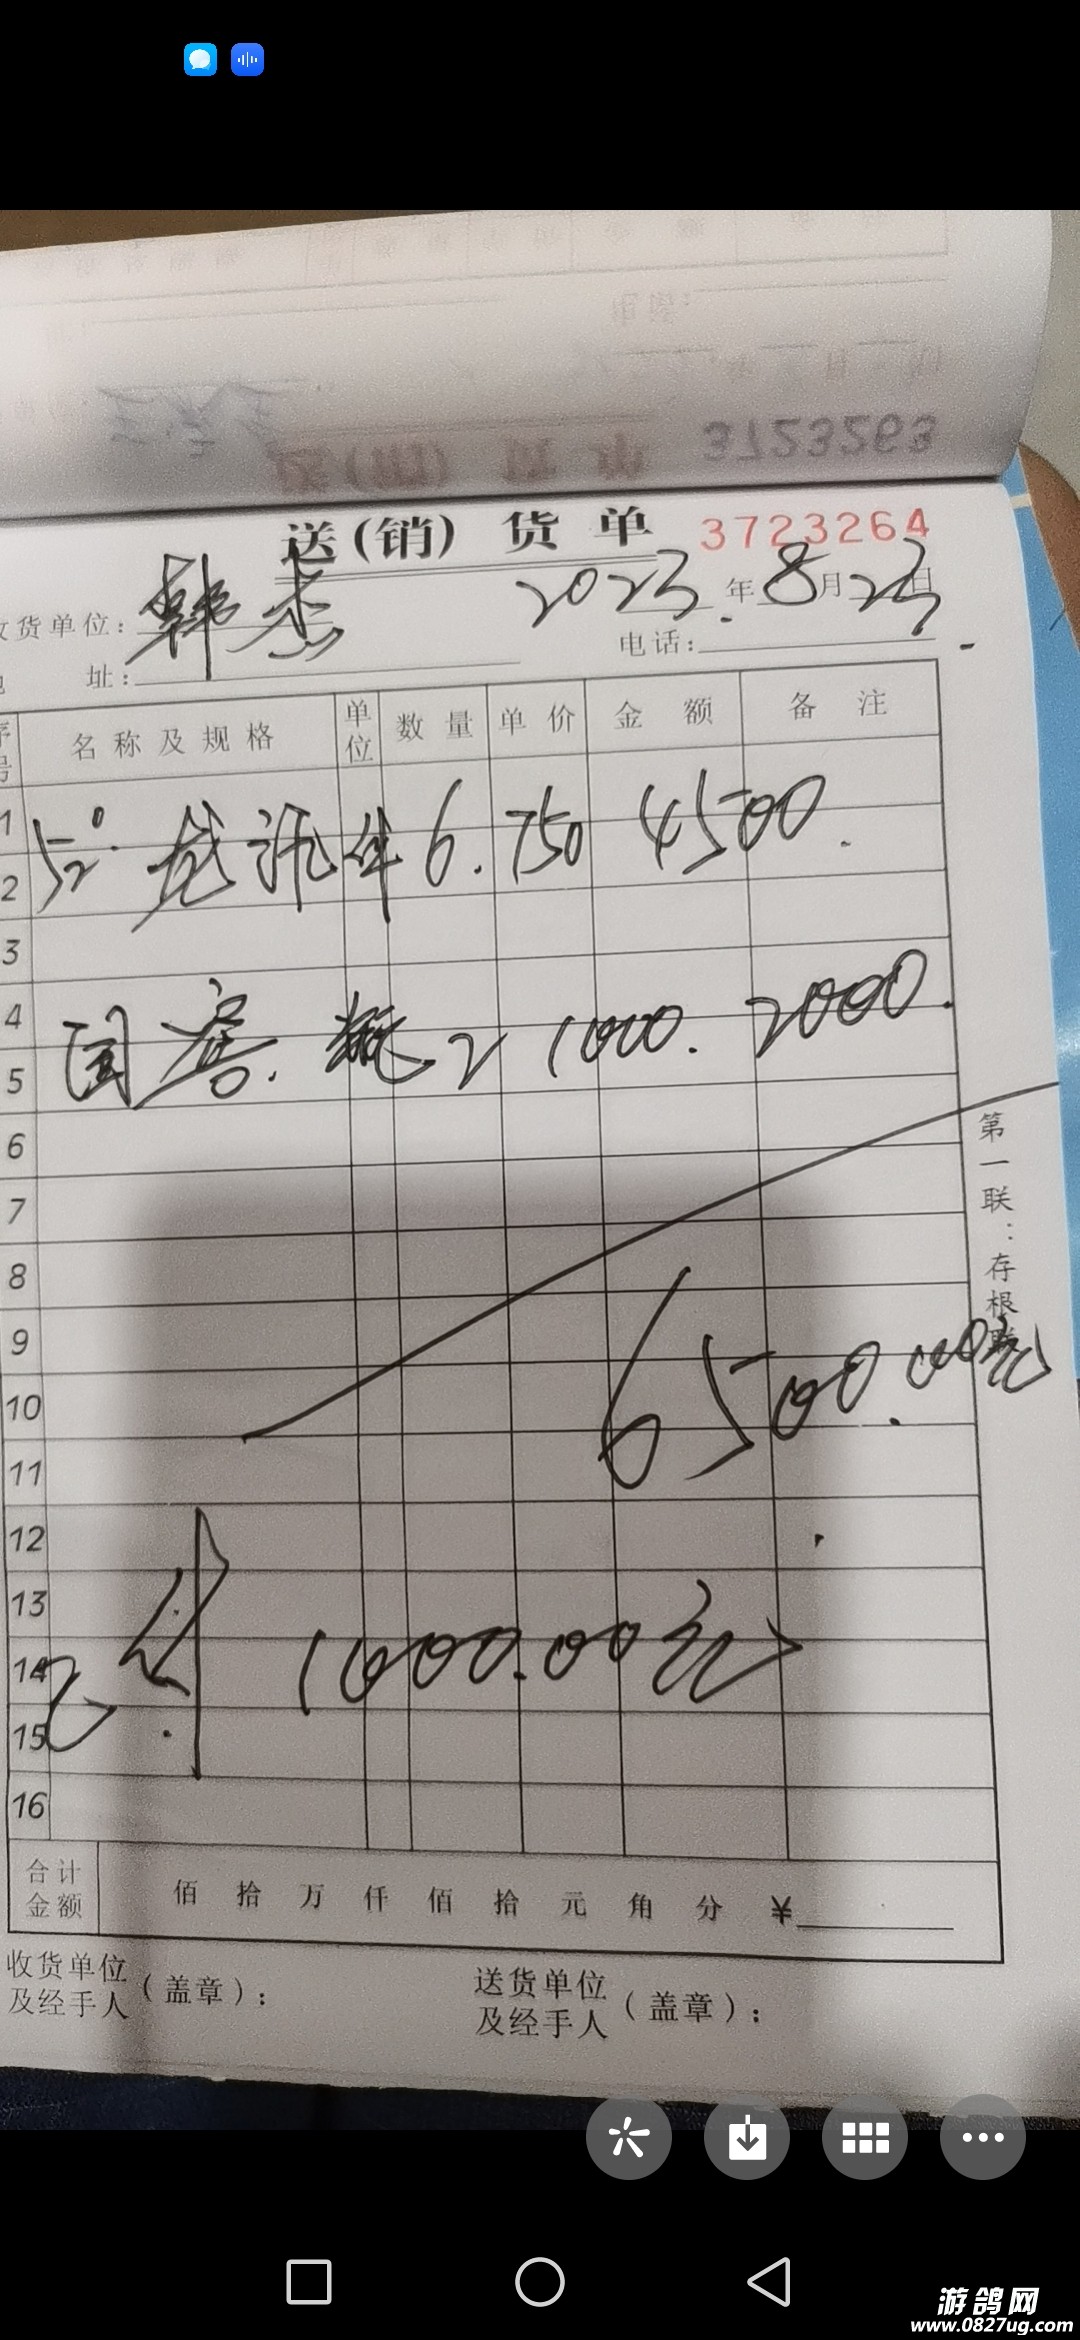 3723263
送(销)货单 3723264
收货单位: 韩杰 2023年8月23日
地 址: 电话:
序号 名称及规格 单位 数量 单价 金额 备注
1
52° 龙讯 件 6. 750 4500.
2
3
4
国窖. 瓶 2 1000. 2000.
5
6
7
8
9
6500.00元
10
11
12
13
14
已付 1000.00元
15
16
合计金额 佰 拾 万 仟 佰 拾 元 角 分 ¥
收货单位及经手人(盖章): 送货单位及经手人(盖章):
第一联:存根联
游鸽网
www.0827ug.com